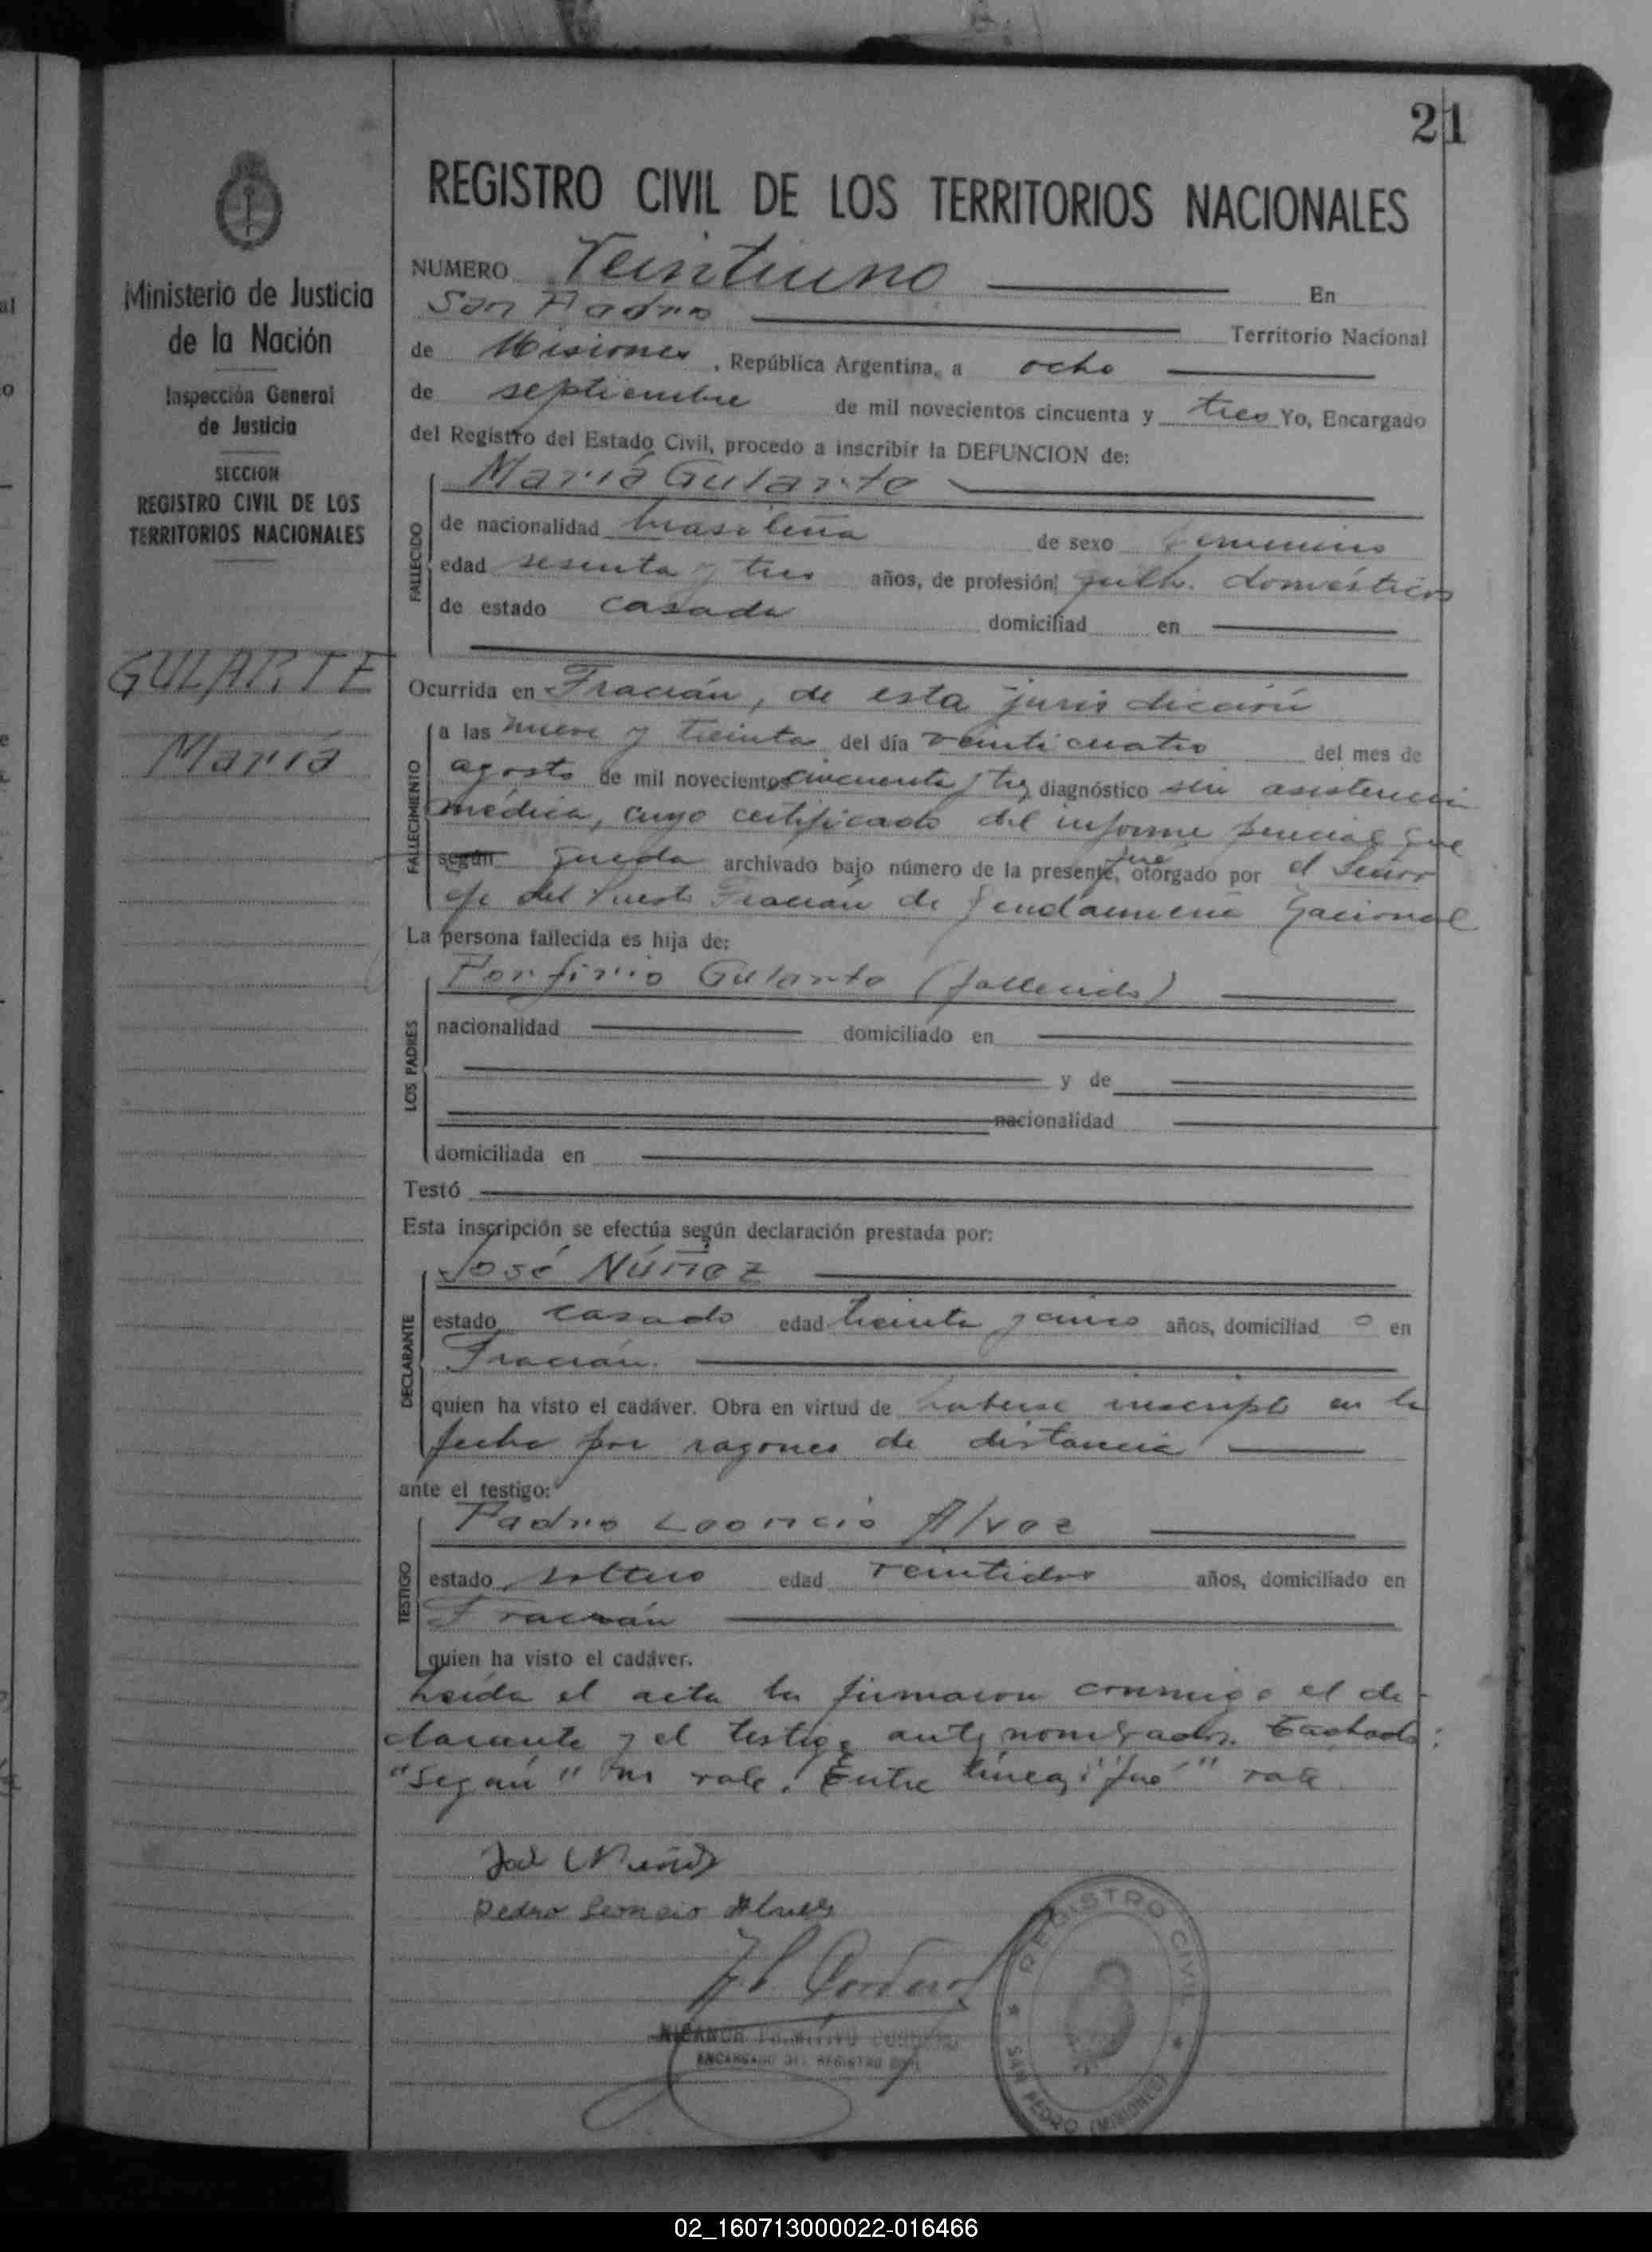 21
REGISTRO CIVIL DE LOS TERRITORIOS NACIONALES
Ministerio de Justicia
de la Nación
Inspección General
de Justicia
SECCION
REGISTRO CIVIL DE LOS
TERRITORIOS NACIONALES
GULARTE
María
NUMERO Veintiuno En
San Pedro Territorio Nacional
de Misiones, República Argentina, a ocho
de septiembre de mil novecientos cincuenta y tres Yo, Encargado
del Registro del Estado Civil, procedo a inscribir la DEFUNCION de:
María Gularte
FALLECIDO
de nacionalidad brasileña de sexo femenino
edad sesenta y tres años, de profesión quEh. domésticos
de estado casada domiciliad en
Ocurrida en Fracrán, de esta jurisdicción
FALLECIMIENTO
a las nueve y treinta del día veinticuatro del mes de
agosto de mil novecientos cincuenta y tres diagnóstico sin asistencia
médica, cuyo certificado del informe que
según queda archivado bajo número de la presente, fue otorgado por el Señor
efe del Puesto Fracrán de Gendarmería Nacional
La persona fallecida es hija de:
LOS PADRES
Porfirio Gularte (fallecido)
nacionalidad domiciliado en
y de
nacionalidad
domiciliada en
Testó
Esta inscripción se efectúa según declaración prestada por:
DECLARANTE
José Núñez
estado casado edad treinta y cinco años, domiciliad o en
Fracrán.
quien ha visto el cadáver. Obra en virtud de haberse inscripto en la
fecha por razones de distancia
ante el testigo:
TESTIGO
Pedro Leoncio Alvez
estado soltero edad veintidos años, domiciliado en
Fracrán
quien ha visto el cadáver.
Leída el acta la firmaron conmigo el de-
clarante y el testigo antes nombrados. Tachado:
"según" no vale. Entre líneas: "fue" vale.
José Núñez
Pedro Leoncio Alvez
N.P. Cordero
NICANOR PRIMITIVO CORDERO
ENCARGADO DEL REGISTRO CIVIL
REGISTRO CIVIL
SAN PEDRO (MISIONES)
02_160713000022-016466